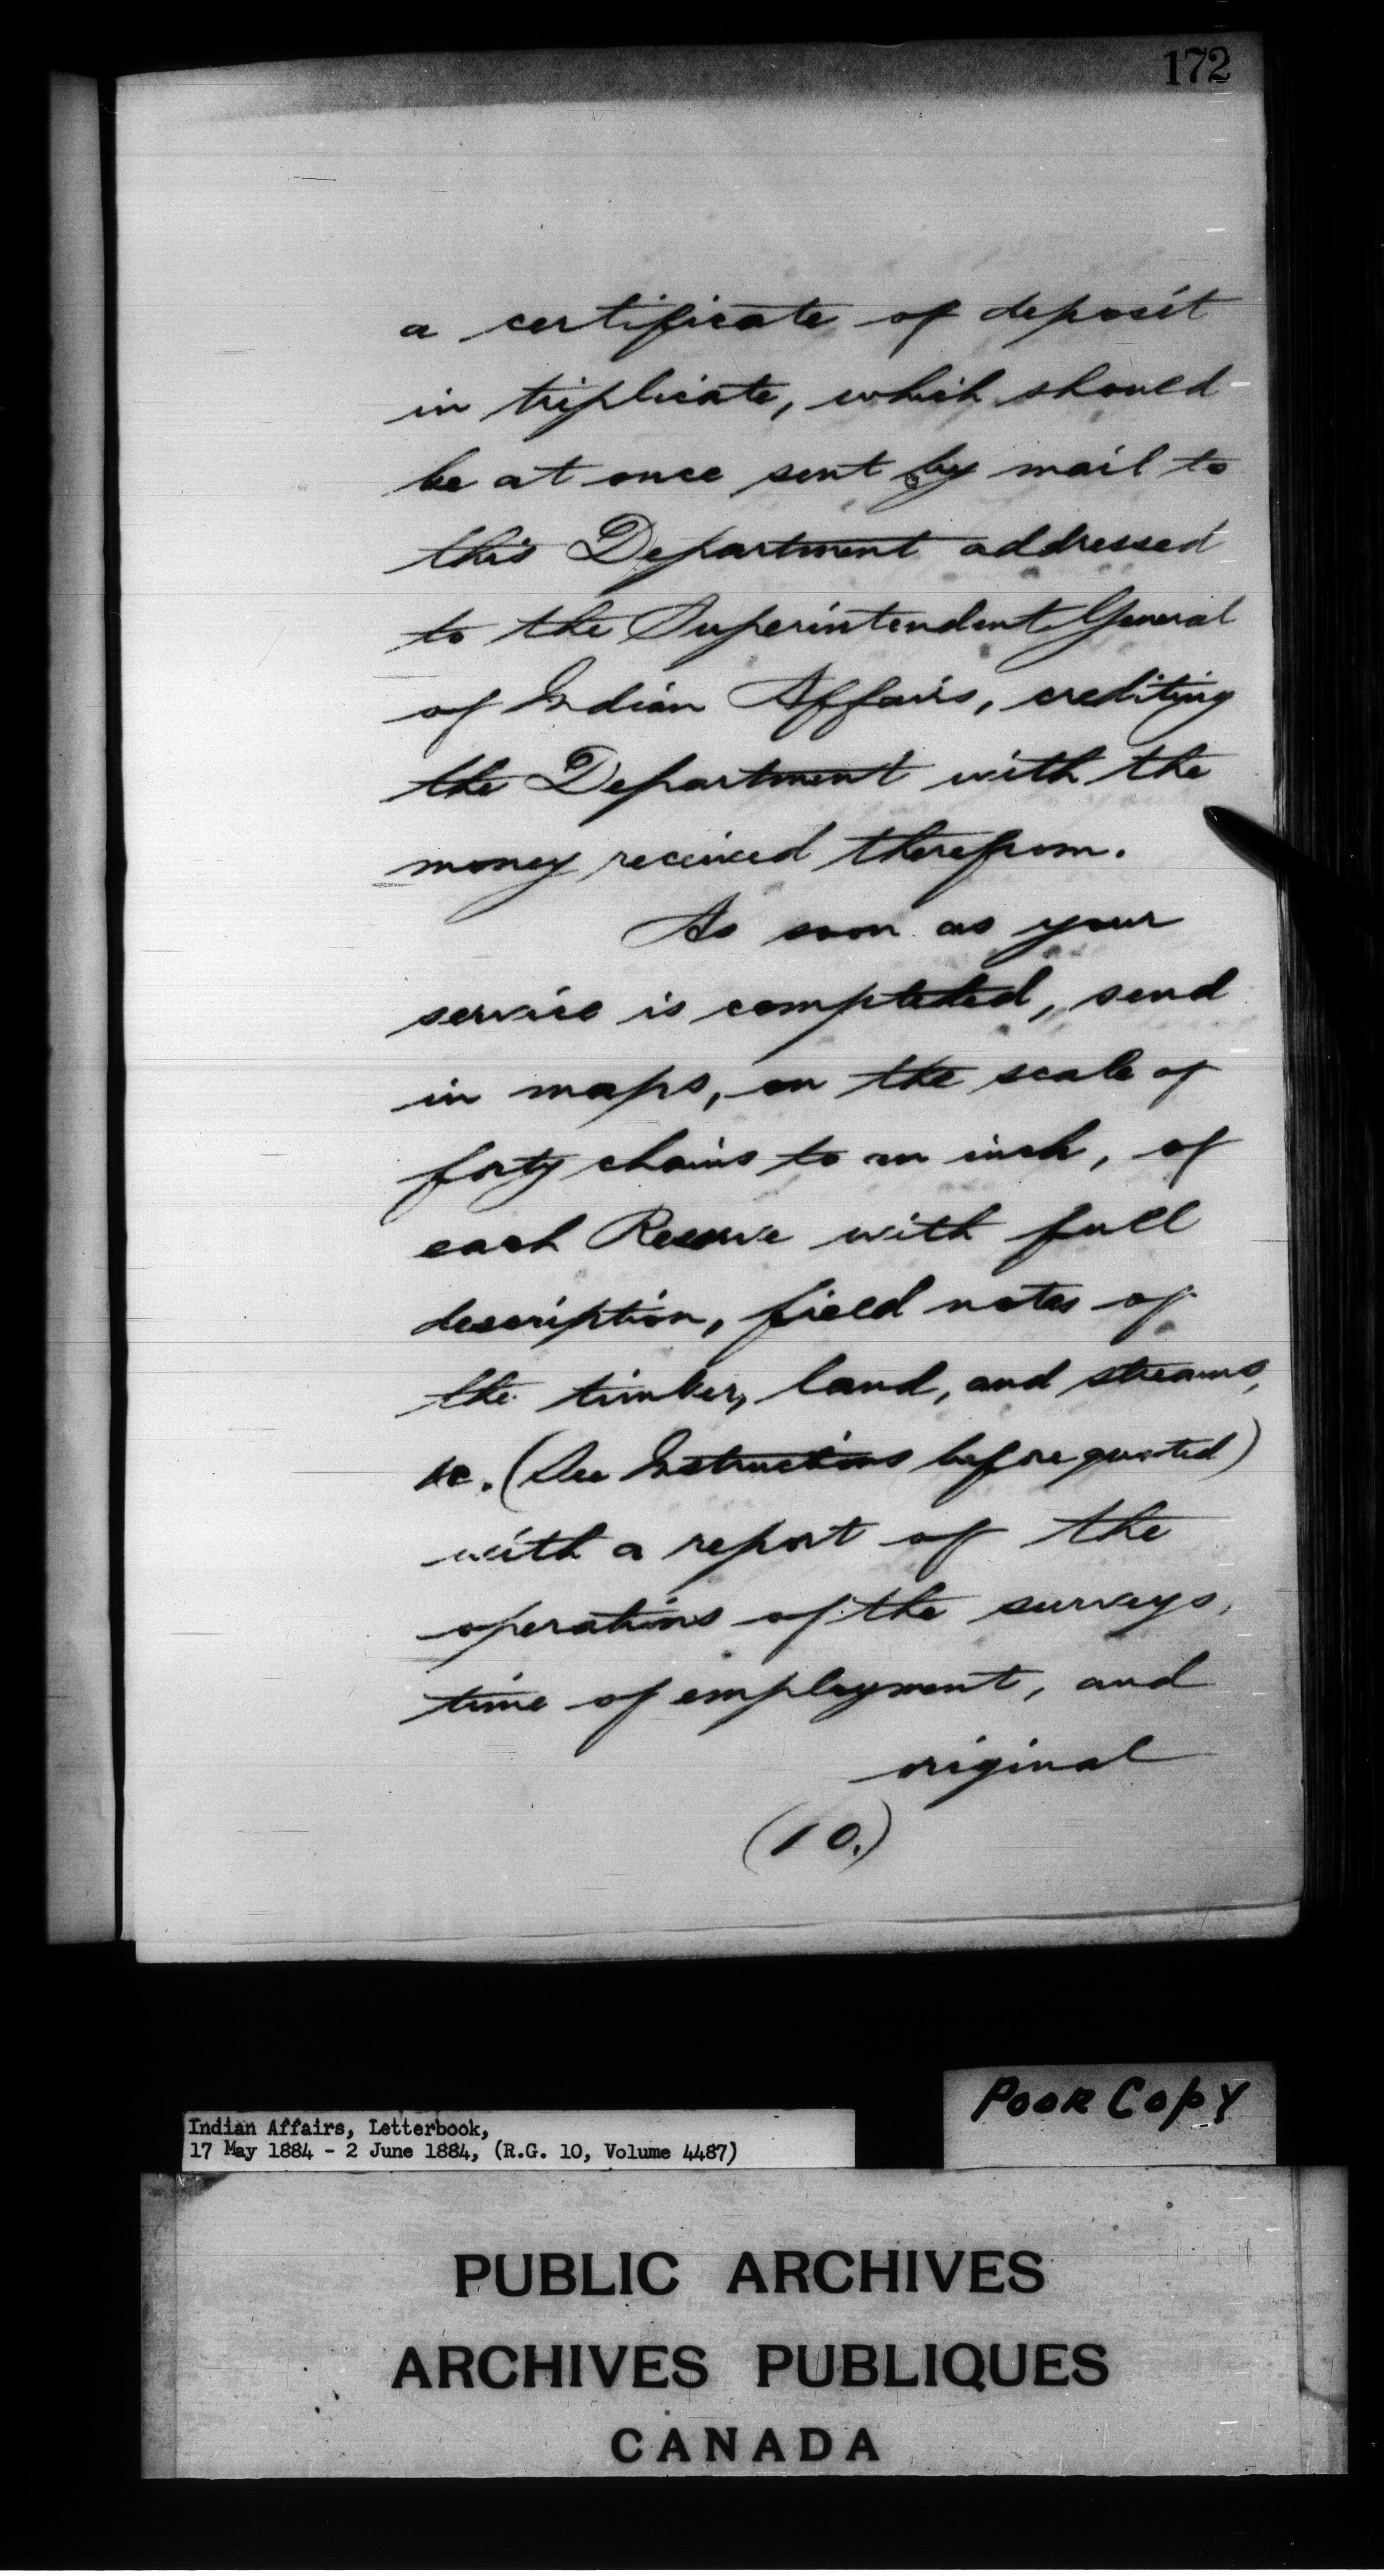 172
a certificate of deposit
in triplicate, which should
be at once sent by mail to
this Department addressed
to the Superintendent General
of Indian Affairs, crediting
the Department with the
money received therefrom.
As soon as your
service is completed, send
in maps, on the scale of
forty chains to an inch, of
each Reserve with full
description, field notes of
the timber, land, and streams,
&c. (See Instructions before quoted)
with a report of the
operations of the surveys,
time of employment, and
original
(10.)
POOR COPY
Indian Affairs, Letterbook,
17 May 1884 - 2 June 1884, (R.G. 10, Volume 4487)
PUBLIC ARCHIVES
ARCHIVES PUBLIQUES
CANADA